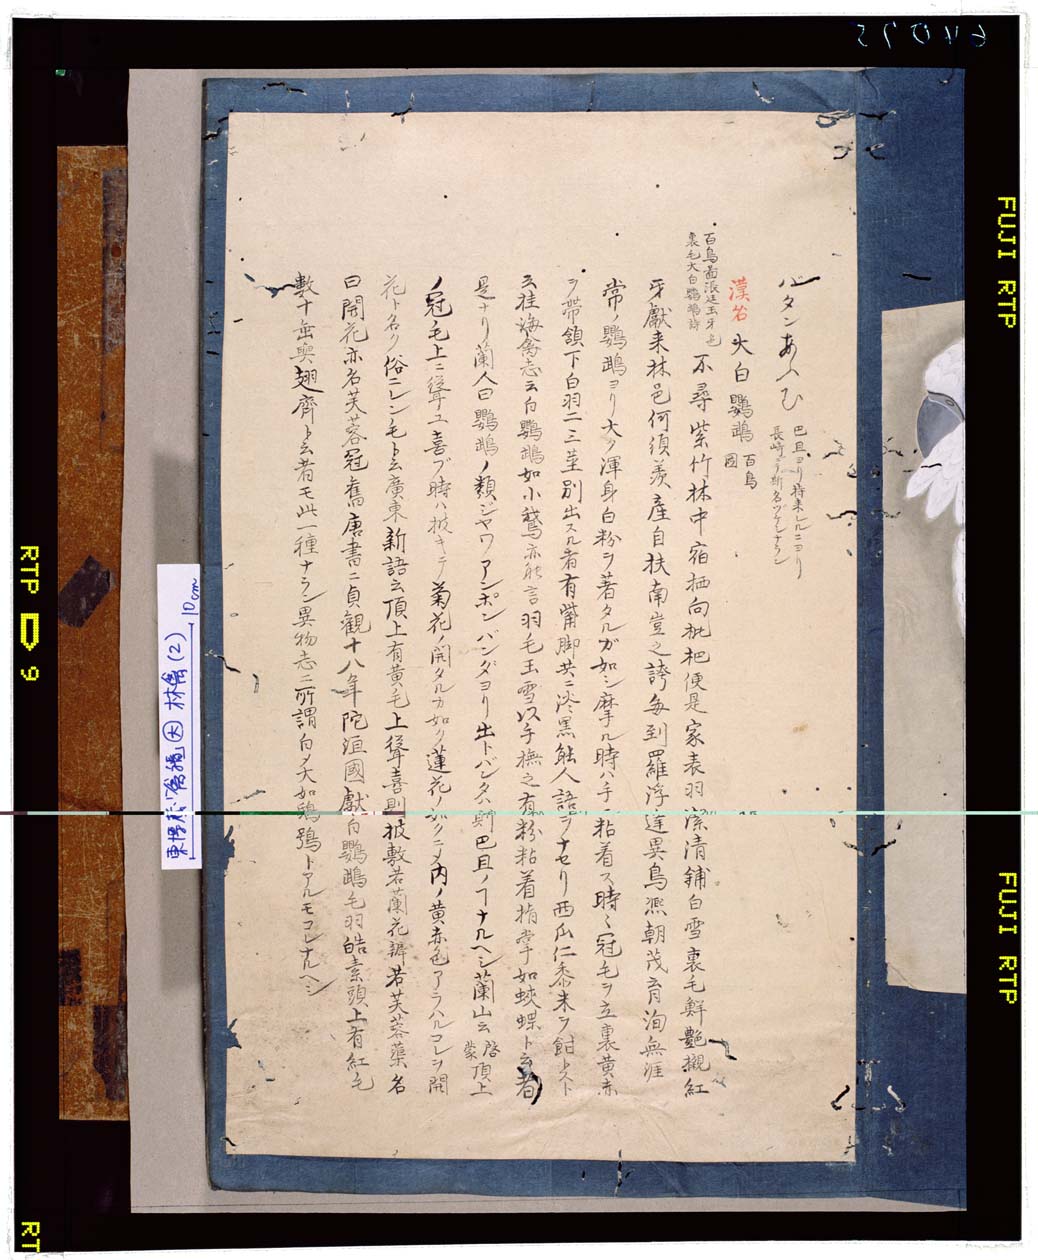 バタンあふひ 巴且ヨリ持来レルニヨリ
長崎ニテ斯名ツケシナラン
漢名 大白鸚鵡 百鳥
圖
百鳥圖張廷玉牙色
裏毛大白鸚鵡詩
不尋紫竹林中宿栖向枇杷便是家表羽潔清鋪白雪裏毛鮮艶襯紅
牙獻来林邑何須羨産自扶南豈足誇毎到羅浮逢異鳥凞朝茂育洵無涯
常ノ鸚鵡ヨリ大ク渾身白粉ヲ著タルガ如シ摩テル時ハ手ニ粘着ス時々冠毛ヲ立裏黄赤
ヲ帯頷下白羽二三莖別出スル者有觜脚共ニ淡黒能人語ヲナセリ西瓜仁黍米ヲ飼トスト
云桂海禽志云白鸚鵡如小鵞亦能言羽毛玉雪以手撫之有粉粘着指掌如蛺蝶ト云者
是ナリ蘭人曰鸚鵡ノ類ジヤワアンボンバンダヨリ出トバンタハ即巴且ノヿナルヘシ蘭山云 啓
蒙 頂上
ノ冠毛上ニ聳ユ喜ブ時ハ披キテ菊花ノ開タルカ如ク蓮花ノ如クニメ内ノ黄赤色アラハルコレヲ開
花ト名ク俗ニレン毛ト云廣東新語云頂上有黄毛上聳喜則披敷若蘭花瓣若芙蓉蕖名
曰開花亦名芙蓉冠舊唐書ニ貞観十八年陀洹國獻白鸚鵡毛羽皓素頭上有紅毛
數十莖與翅齊ト云者モ此一種ナラン異物志ニ所謂白メ大如鴟鴞トアルモコレナルヘシ
東博蔵「禽譜」 林禽(2)
10cm
64075
FUJI RTP
FUJI RTP
RTP 9
RT